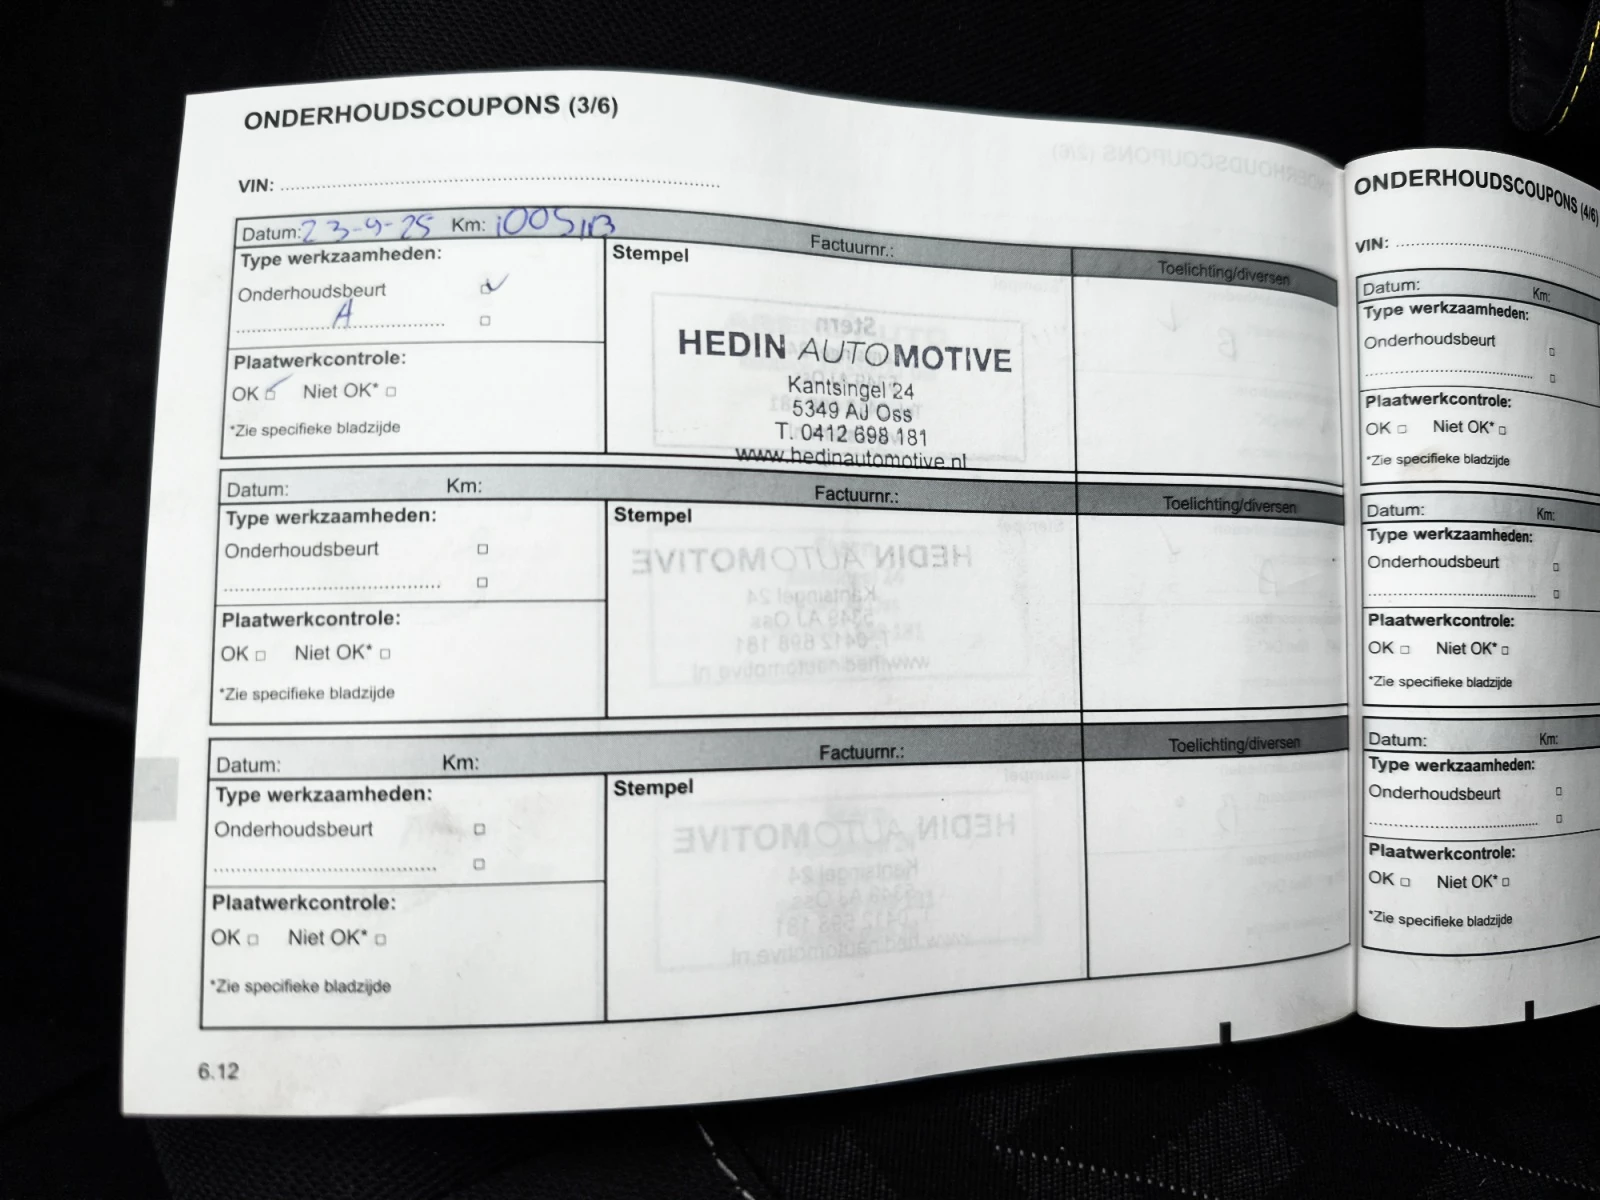 ONDERHOUDSCOUPONS (3/6)
VIN:
Datum: 23-9-25 Km: 100513 Factuurnr.: Toelichting/diversen
Type werkzaamheden:
Onderhoudsbeurt
A
Plaatwerkcontrole:
OK Niet OK*
*Zie specifieke bladzijde
Stempel
HEDIN AUTOMOTIVE
Kantsingel 24
5349 AJ Oss
T. 0412 698 181
www.hedinautomotive.nl
Datum: Km: Factuurnr.: Toelichting/diversen
Type werkzaamheden:
Onderhoudsbeurt
Plaatwerkcontrole:
OK Niet OK*
*Zie specifieke bladzijde
Stempel
Datum: Km: Factuurnr.: Toelichting/diversen
Type werkzaamheden:
Onderhoudsbeurt
Plaatwerkcontrole:
OK Niet OK*
*Zie specifieke bladzijde
Stempel
6.12
ONDERHOUDSCOUPONS (4/6)
VIN:
Datum: Km:
Type werkzaamheden:
Onderhoudsbeurt
Plaatwerkcontrole:
OK Niet OK*
*Zie specifieke bladzijde
Datum: Km:
Type werkzaamheden:
Onderhoudsbeurt
Plaatwerkcontrole:
OK Niet OK*
*Zie specifieke bladzijde
Datum: Km:
Type werkzaamheden:
Onderhoudsbeurt
Plaatwerkcontrole:
OK Niet OK*
*Zie specifieke bladzijde